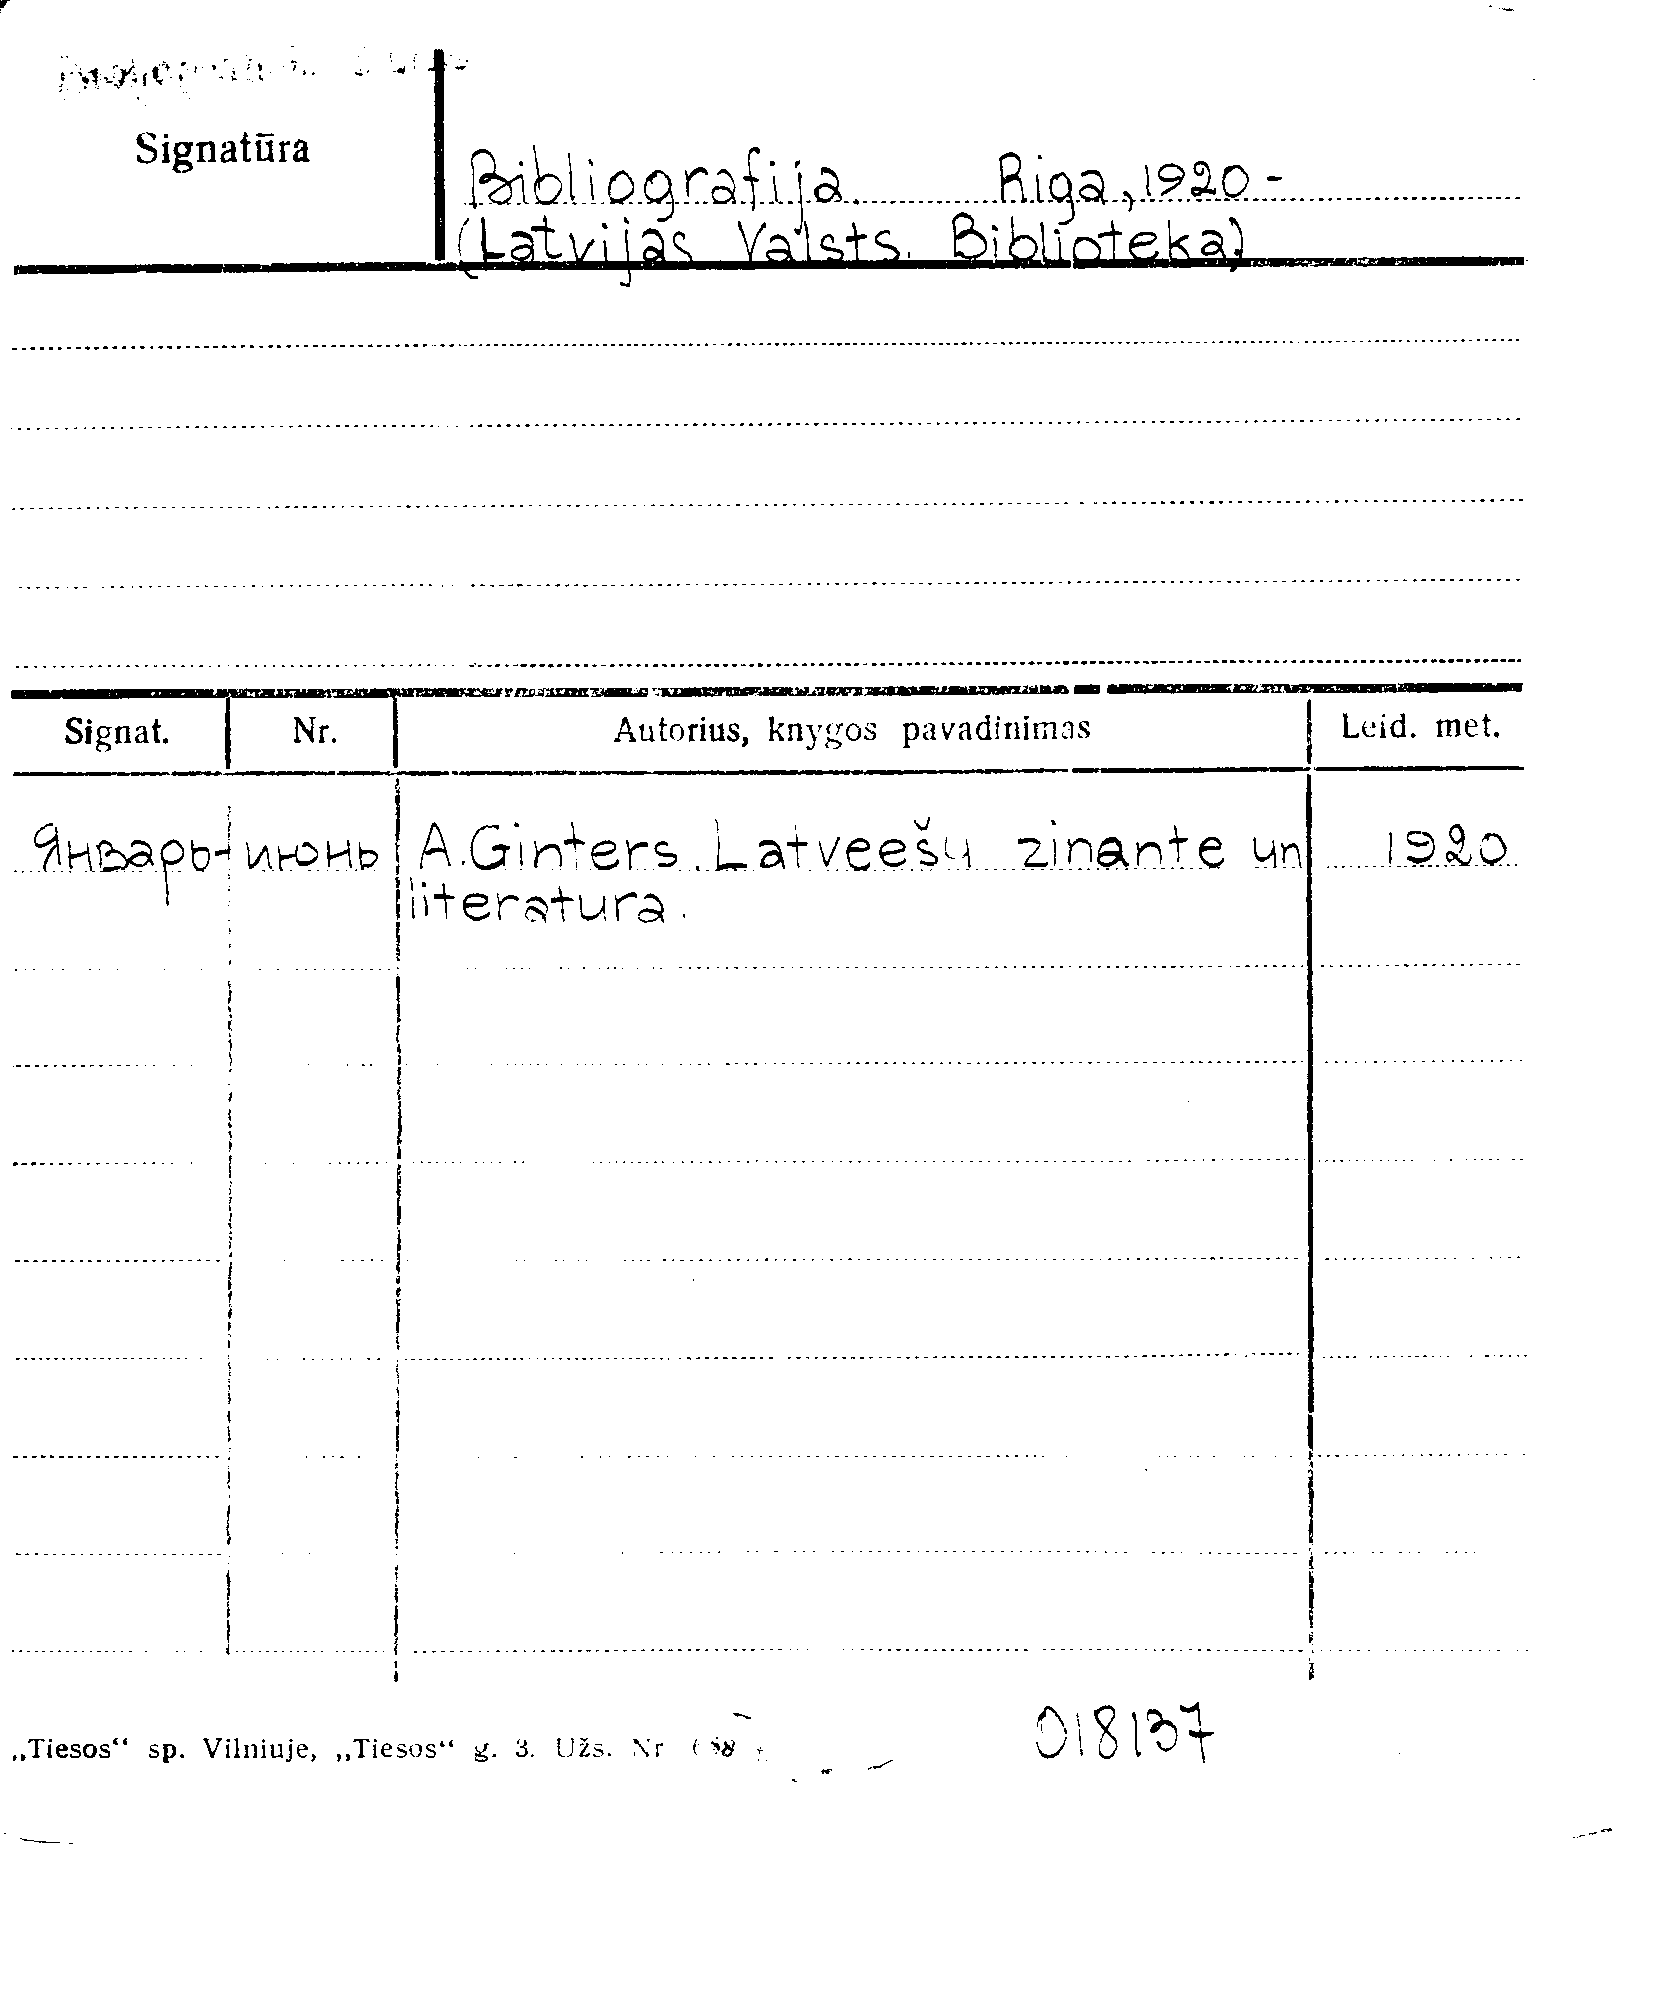 Signatūra
Bibliografija. Riga, 1920-
(Latvijas Valsts. Biblioteka)
Signat. Nr. Autorius, knygos pavadinimas Leid. met.
Январь- июнь A. Ginters. Latveešu zinante un 1920
literatura.
„Tiesos“ sp. Vilniuje, „Tiesos“ g. 3. Užs. Nr
018137